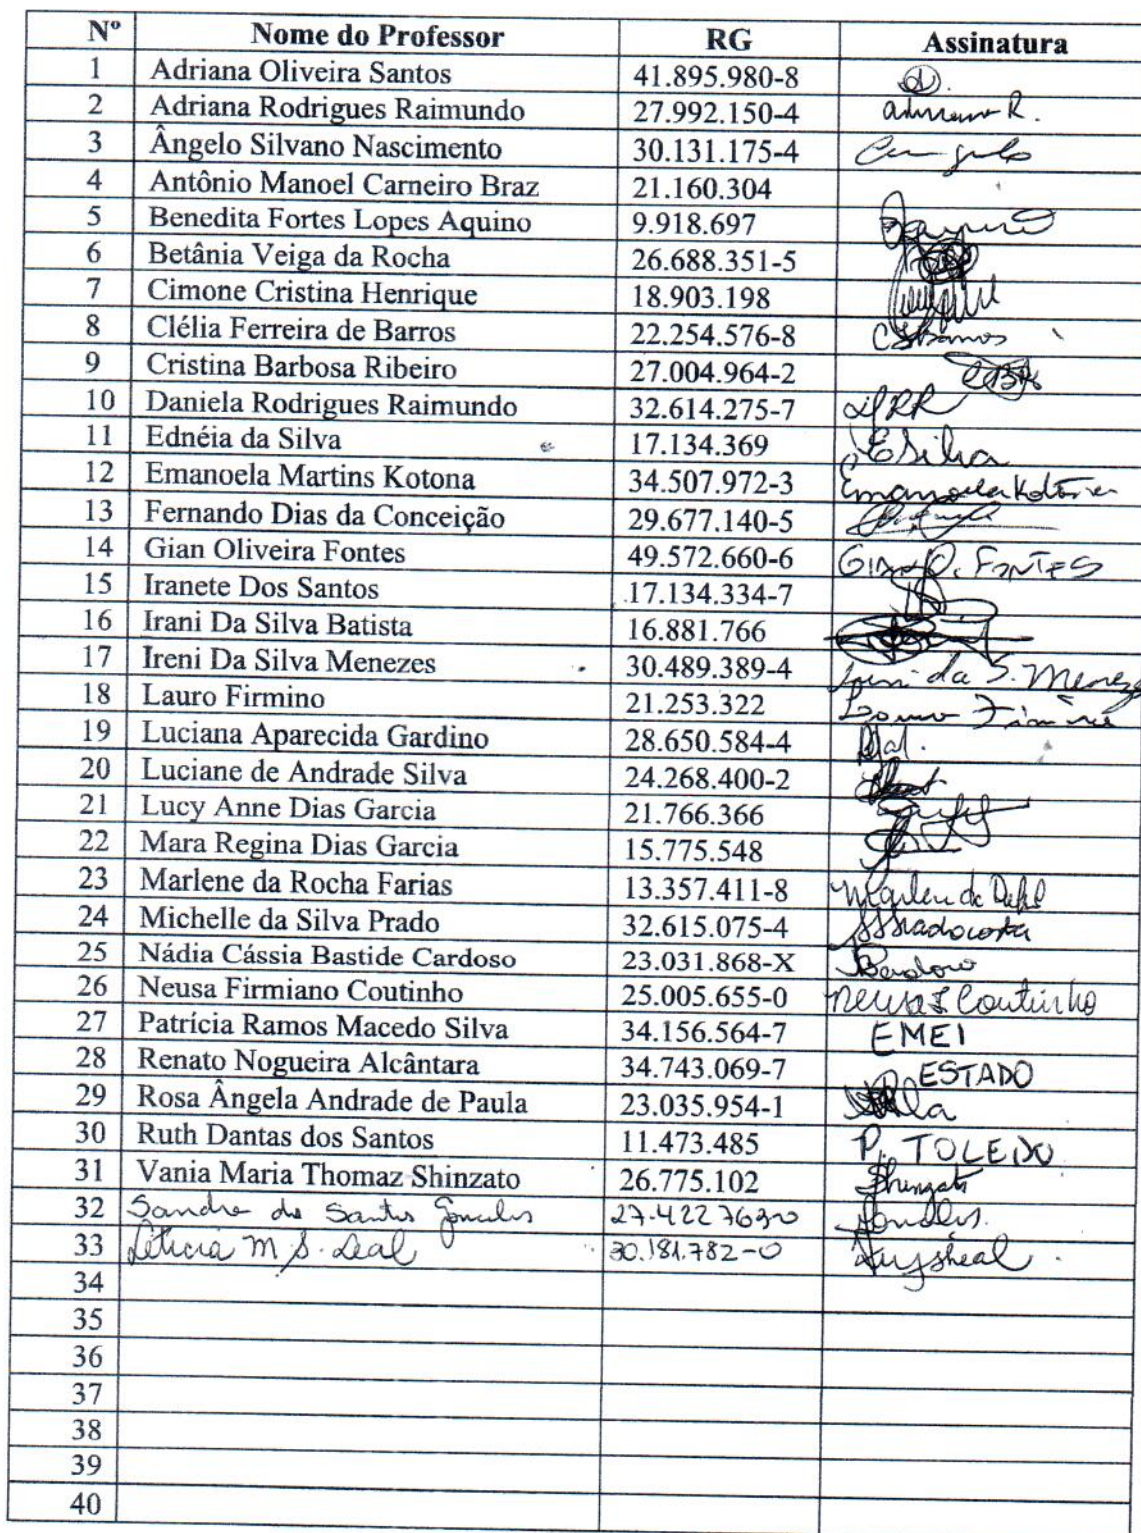 Nº Nome do Professor RG Assinatura
1 Adriana Oliveira Santos 41.895.980-8
2 Adriana Rodrigues Raimundo 27.992.150-4 R.
3 Ângelo Silvano Nascimento 30.131.175-4
4 Antônio Manoel Carneiro Braz 21.160.304
5 Benedita Fortes Lopes Aquino 9.918.697
6 Betânia Veiga da Rocha 26.688.351-5
7 Cimone Cristina Henrique 18.903.198
8 Clélia Ferreira de Barros 22.254.576-8
9 Cristina Barbosa Ribeiro 27.004.964-2
10 Daniela Rodrigues Raimundo 32.614.275-7
11 Ednéia da Silva 17.134.369 ESilva
12 Emanoela Martins Kotona 34.507.972-3
13 Fernando Dias da Conceição 29.677.140-5
14 Gian Oliveira Fontes 49.572.660-6 GIAN O. FONTES
15 Iranete Dos Santos 17.134.334-7
16 Irani Da Silva Batista 16.881.766
17 Ireni Da Silva Menezes 30.489.389-4 da S. Menezes
18 Lauro Firmino 21.253.322
19 Luciana Aparecida Gardino 28.650.584-4
20 Luciane de Andrade Silva 24.268.400-2
21 Lucy Anne Dias Garcia 21.766.366
22 Mara Regina Dias Garcia 15.775.548
23 Marlene da Rocha Farias 13.357.411-8
24 Michelle da Silva Prado 32.615.075-4
25 Nádia Cássia Bastide Cardoso 23.031.868-X
26 Neusa Firmiano Coutinho 25.005.655-0 Neusa F Coutinho
27 Patrícia Ramos Macedo Silva 34.156.564-7 EMEI
28 Renato Nogueira Alcântara 34.743.069-7 ESTADO
29 Rosa Ângela Andrade de Paula 23.035.954-1
30 Ruth Dantas dos Santos 11.473.485 P. TOLEDO
31 Vania Maria Thomaz Shinzato 26.775.102 Shinzato
32 Sandra dos Santos 27.422763-0
33 Letícia M S. Leal 30.181.782-0
34
35
36
37
38
39
40